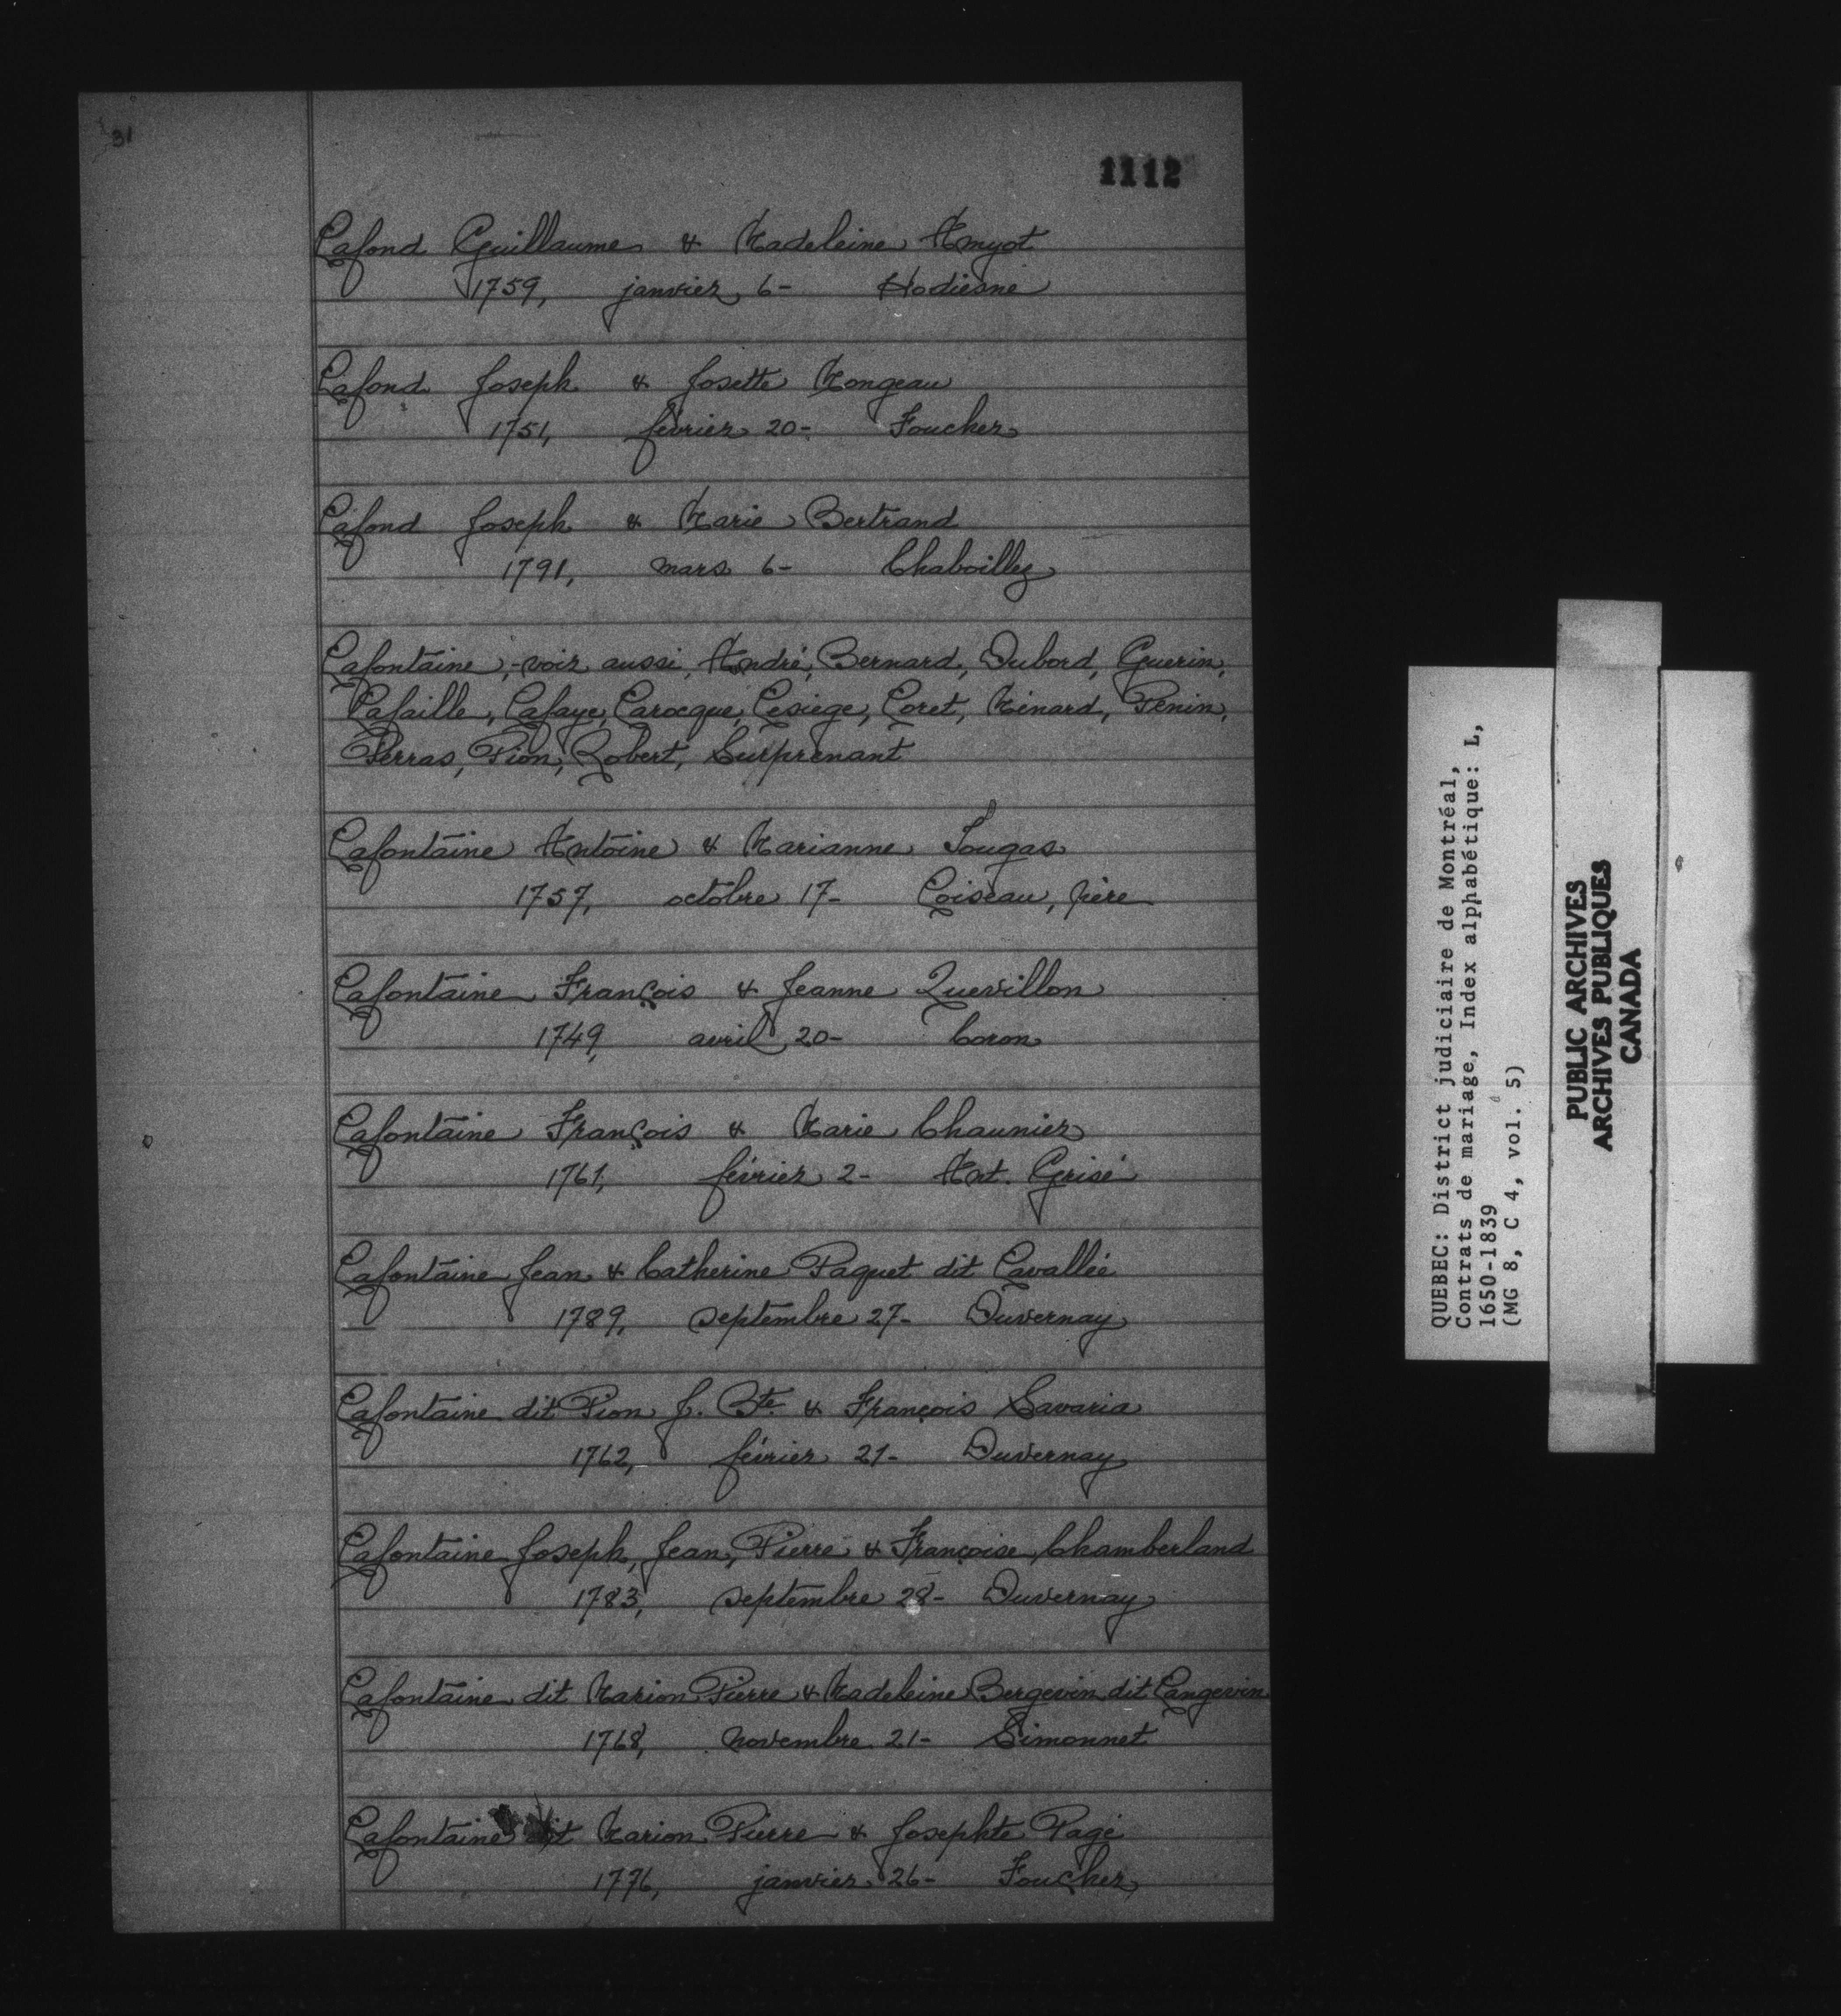 31
1112
Lafond Guillaume & Madeleine Amyot
1759, janvier 6- Hodiesne
Lafond Joseph & Josette Mongeau
1751, février 20- Foucher
Lafond Joseph & Marie Bertrand
1791, mars 6- Chaboillez
Lafontaine, -voir aussi, André, Bernard, Dubord, Guerin,
Lafaille, Lafaye, Larocque, Lesiege, Loret, Ménard, Penin,
Perras, Pion, Robert, Surprenant
Lafontaine Antoine & Marianne Sougas
1757, octobre 17- Loiseau, père
Lafontaine François & Jeanne Quevillon
1749, avril 20- Coron
Lafontaine François & Marie Chaunier
1761, février 2- Ant. Grisé
Lafontaine Jean & Catherine Paquet dit Lavallée
1789, septembre 27- Duvernay
Lafontaine dit Pion J. Bte. & François Savaria
1762, février 21- Duvernay
Lafontaine Joseph, Jean, Pierre & Françoise Chamberland
1783, septembre 28- Duvernay
Lafontaine dit Marion Pierre & Madeleine Bergevin dit Langevin
1768, novembre 21- Simonnet
Lafontaine dit Marion Pierre & Josephte Pagé
1776, janvier 26- Foucher
QUEBEC: District judiciaire de Montréal,
Contrats de mariage, Index alphabétique: L,
1650-1839
(MG 8, C 4, vol. 5)
PUBLIC ARCHIVES
ARCHIVES PUBLIQUES
CANADA